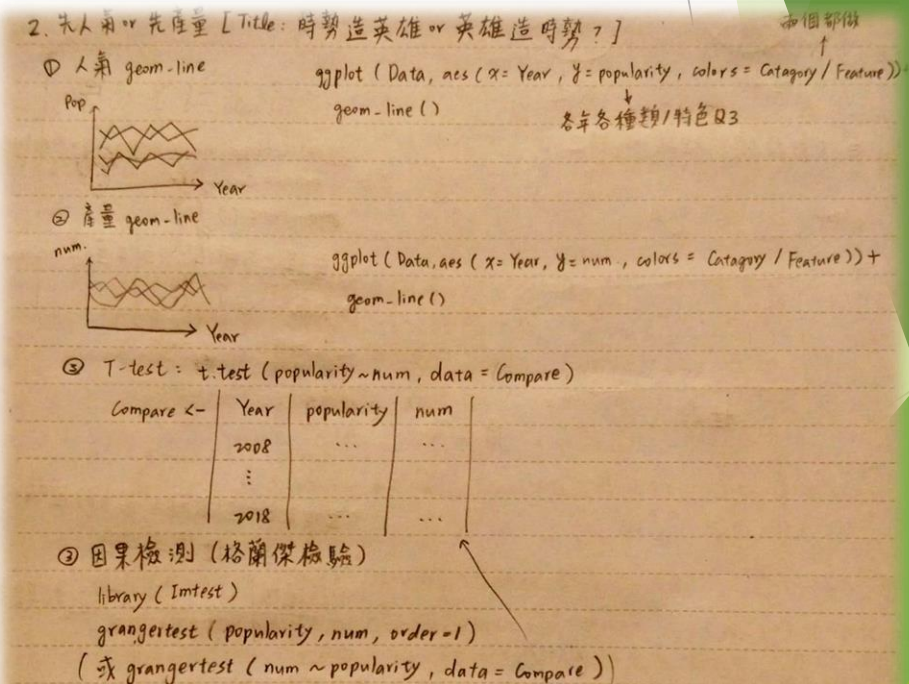 2. 先人氣 or 先產量 [Title: 時勢造英雄 or 英雄造時勢?]
兩個都做
① 人氣 geom-line
ggplot (Data, aes (x= Year, y= popularity, colors = Catagory / Feature))+
geom-line ()
各年各種類/特色Q3
Pop
Year
② 產量 geom-line
num.
ggplot (Data, aes (x= Year, y= num, colors = Catagory / Feature)) +
geom-line ()
Year
③ T-test: t.test (popularity ~ num, data = Compare)
Compare <- Year popularity num
2008 ... ...
⋮
2018 ... ...
③ 因果檢測 (格蘭傑檢驗)
library (lmtest)
grangertest (popularity, num, order=1)
(或 grangertest (num ~ popularity, data = Compare))